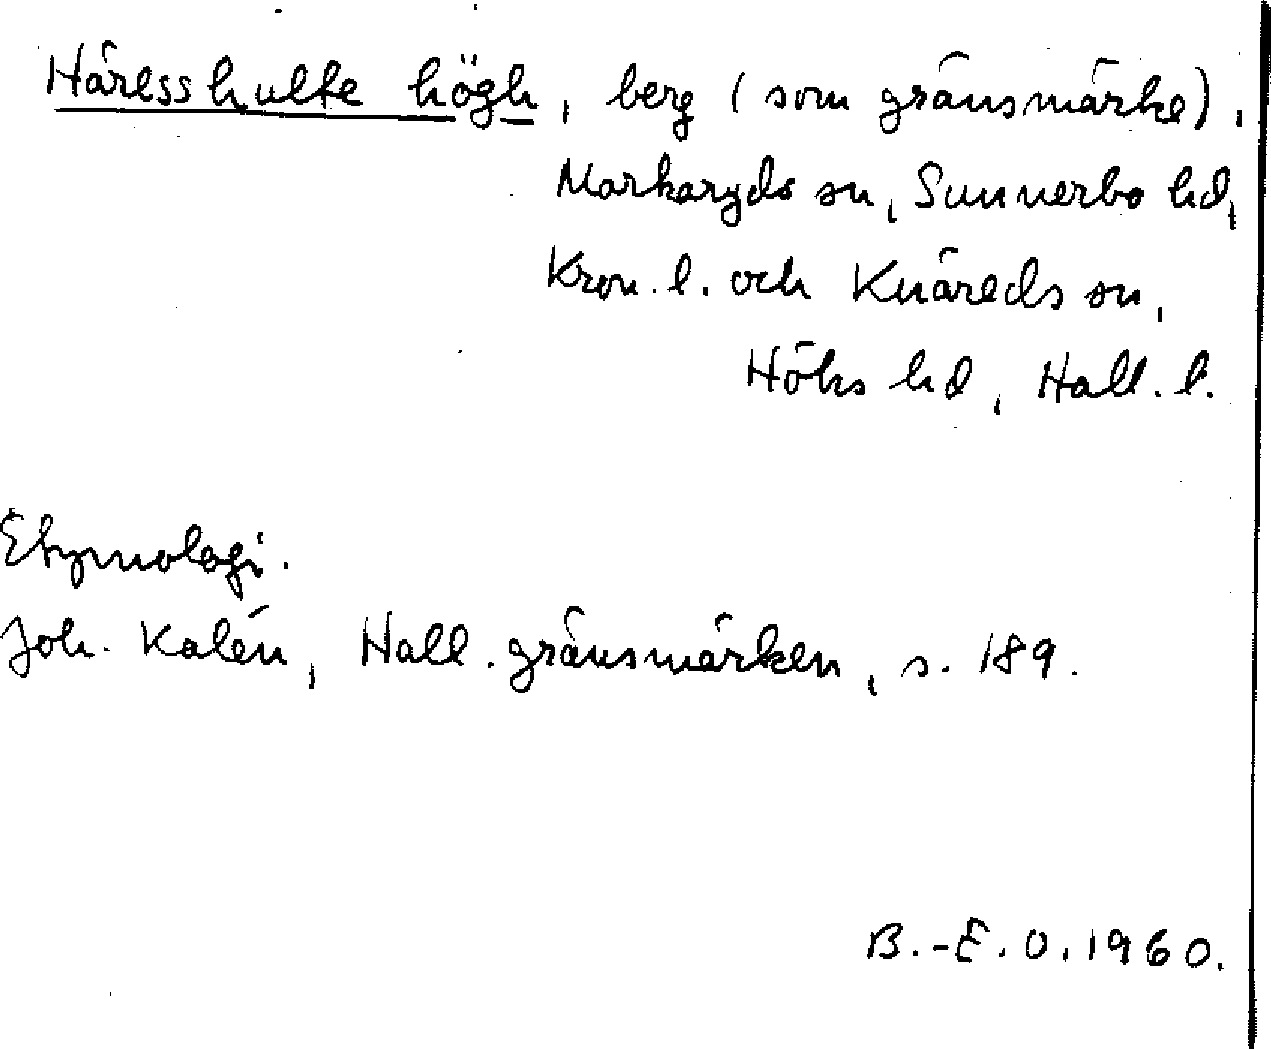 Häresshulte högh, berg (som gränsmärke),
Markaryds sn, Sunnerbo hd,
Kron. l. och Knäreds sn,
Höks hd, Hall. l.
Etymologi.
Joh. Kalén, Hall. gränsmärken, s. 189.
B.-E. O. 1960.